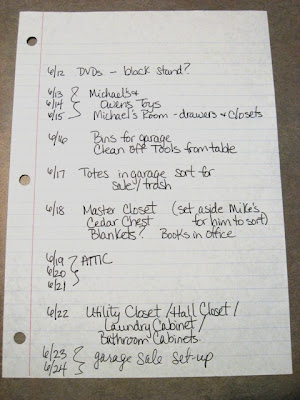 6/12 DVDs - black stand?
6/13 Michael's &
6/14 Owens Toys
6/15 Michael's Room - drawers & closets
6/16 Bins for garage
Clean off Tools from table
6/17 Totes in garage sort for
sale/trash
6/18 Master Closet (set aside Mike's
Cedar Chest for him to sort)
Blankets? Books in office
6/19
6/20 ATTIC
6/21
6/22 Utility Closet/Hall Closet/
Laundry Cabinet/
Bathroom Cabinets
6/23 garage sale set-up
6/24